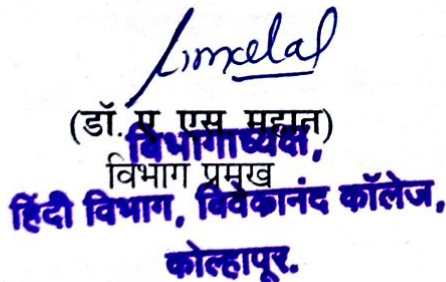 (डॉ. ए एस महात)
विभागाध्यक्ष,
विभाग प्रमुख
हिंदी विभाग, विवेकानंद कॉलेज,
कोल्हापूर.